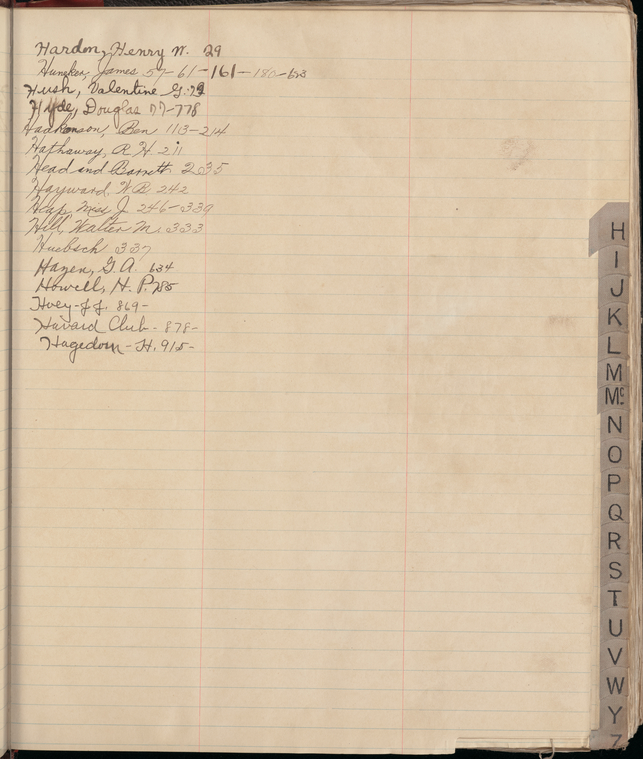 Hardon, Henry W. 29
Huneker, James 57-61-161-180-623
Hush, Valentine G.
Hyde, Douglas 77-778
Haakonson, Ben 113-214
Hathaway, R H. 211
Head and Barrett 235
Hayward, W B 242
Heap, Miss J 246-339
Hill, Walter M. 333
Huebsch 337
Hazen, G. A. 634
Howell, H. P. 785
Hoey-J.J. 869-
Havard Club - 878-
Hagedorn - H. 915-
H
I
J
K
L
M
Mc
N
O
P
Q
R
S
T
U
V
W
Y
Z